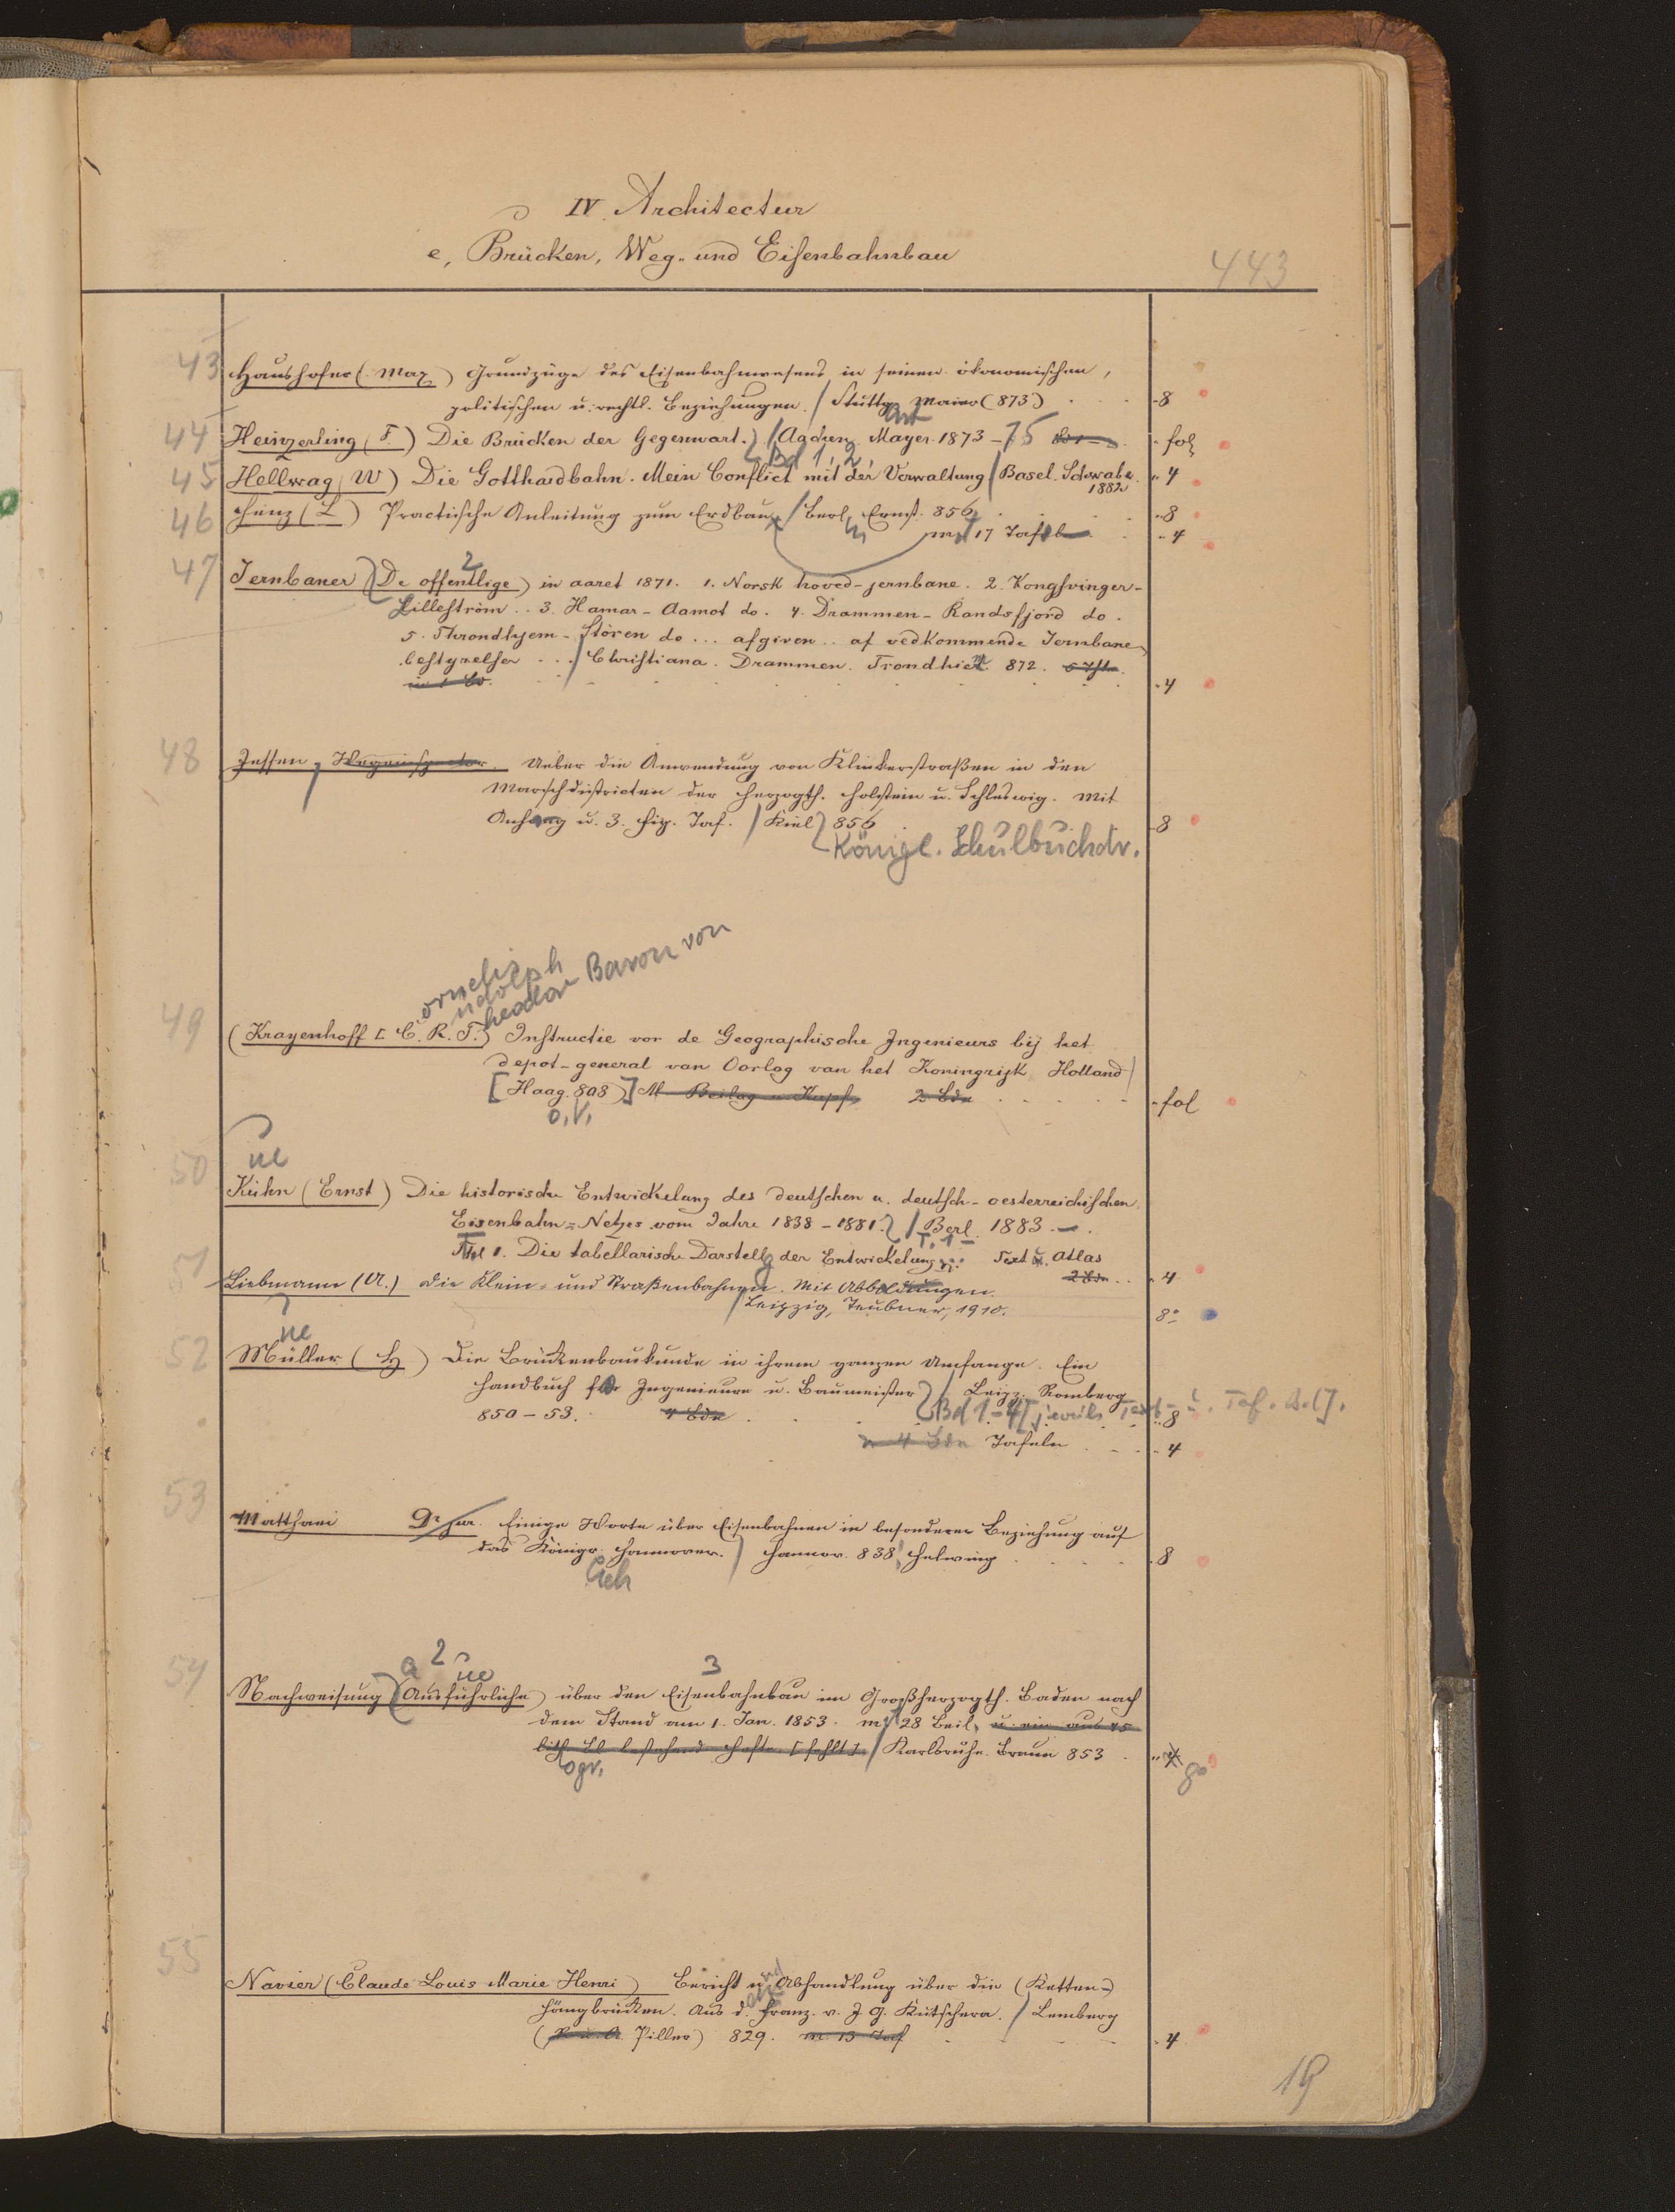 IV. Architectur
e, Brücken, Weg- und Eisenbahnbau
443
43
Haushofer (Max) Grundzüge des Eisenbahnwesens in seinen ökonomischen,
politischen u. rechtl. Beziehungen. / Stuttgart Maier (873) 8
44
Heinzerling (F.) Die Brücken der Gegenwart. / Aachen Mayer 1873-75 fol
Bd 1, 2,
45
Hellwag (W) Die Gotthardbahn. Mein Conflict mit der Verwaltung / Basel. Schwabe 4
1882
46
Henz (L) Practische Anleitung zum Erdbau / Berl. Ernst. 856 8
m. 17 Taf 4
47
Jernbaner (De offentlige) in aaret 1871. 1. Norsk hoved-jernbane. 2. Kongsvinger-
2
Lilleström .. 3. Hamar-Aamot do. 4. Drammen-Randsfjord do.
5. Throndhjem-Stören do ... afgiven .. af vedkommende Jernbane
bestyrelser ... / Christiana. Drammen. Trondhi 872.
in 1 Bd. 4
48
Jessen, Wegeinspector. Ueber die Anwendung von Klinkerstraßen in den
Marschdistricten der Herzogth. Holstein u. Schleswig. Mit
Anhang u. 3. fig. Taf. / Kiel 856 8
Königl. Schulbuchdr.
ornelis
udolph
heodor Baron von
49
(Krayenhoff [C. R. T.) Instructie vor de Geographische Ingenieurs bij het
depot-general van Oorlog van het Koningrijk Holland /
[Haag. 808)] M. Beilag u. Kupf. 2 Bde fol
o. V.
50
ue
Kühn (Ernst) Die historische Entwickelung des deutschen u. deutsch-oesterreichischen
Eisenbahn-Netzes vom Jahre 1838-1881. / Berl. 1883.
T. 1
Thl 1. Die tabellarische Darstellg der Entwickelung Text u. Atlas
2 Bde 4
51
Liebmann (A.) Die Klein- und Straßenbahnen. Mit Abbildungen.
/ Leipzig, Teubner, 1910. 8°
52
ue
Müller (H) Die Brückenbaukunde in ihrem ganzen Umfange. Ein
Handbuch für Ingenieure u. Baumeister / Leipz. Romberg
850-53. 4 Bde Bd 1-4 [jeweils Text- u. Taf. Bd]. 8
4 Bde Tafeln 4
53
Matthaei Dr jur. Einige Worte über Eisenbahnen in besonderer Beziehung auf
das Königr. Hannover. / Hannov. 838 Helwing 8
54
a 2 ue 3
Nachweisung (Ausführliche) über den Eisenbahnbau im Großherzogth. Baden nach
dem Stand am 1. Jan. 1853. mit 28 Beil. u. ein aus 45
lith. Bl bestehend. Hefte [fehlt]. / Karlsruhe. Braun 853 4
ogr. 8°
55
Navier (Claude Louis Marie Henri) Bericht u. Abhandlung über die (Ketten-)
Hängbrücken. Aus d. Franz. v. J. G. Kutschera. / Lemberg
Piller) 829. m. 13 Taf 4
19